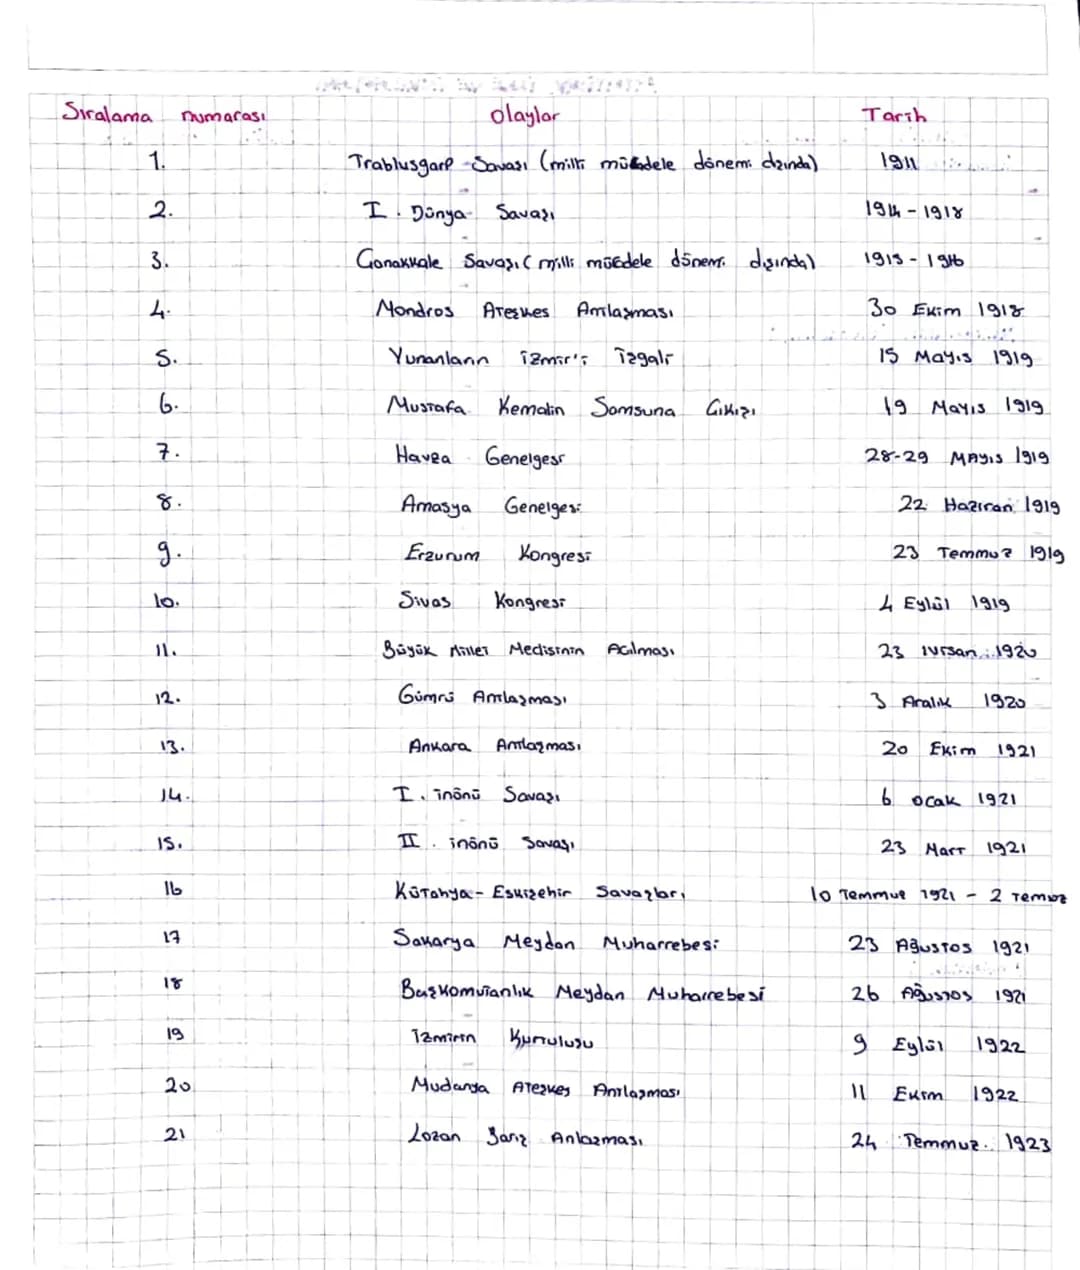 Sıralama numarası Olaylar Tarih
1. Trablusgarp Savası (milli mücadele dönemi dışında) 1911
2. I. Dünya Savaşı 1914-1918
3. Çanakkale Savası (milli mücdele dönemi dışında) 1915-1916
4. Mondros Ateşkes Antlaşması 30 Ekim 1918
5. Yunanların İzmir'i İşgali 15 Mayıs 1919
6. Mustafa Kemalin Samsuna Çıkışı 19 Mayıs 1919
7. Havza Genelgesi 28-29 MAyıs 1919
8. Amasya Genelgesi 22 Haziran 1919
9. Erzurum Kongresi 23 Temmuz 1919
10. Sivas Kongresi 4 Eylül 1919
11. Büyük Millet Meclisinin Açılması 23 Nisan 1920
12. Gümrü Antlaşması 3 Aralık 1920
13. Ankara Antlaşması 20 Ekim 1921
14. I. inönü Savaşı 6 ocak 1921
15. II. inönü Savaşı 23 Mart 1921
16 Kütahya-Eskişehir Savaşları 10 Temmuz 1921 - 2 Temmuz
17 Sakarya Meydan Muharrebesi 23 Ağustos 1921
18 Başkomutanlık Meydan Muharrebesi 26 Ağustos 1921
19 İzmirin Kurtuluşu 9 Eylül 1922
20 Mudanya Ateşkes Antlaşması 11 Ekim 1922
21 Lozan Barış Anlaşması 24 Temmuz. 1923